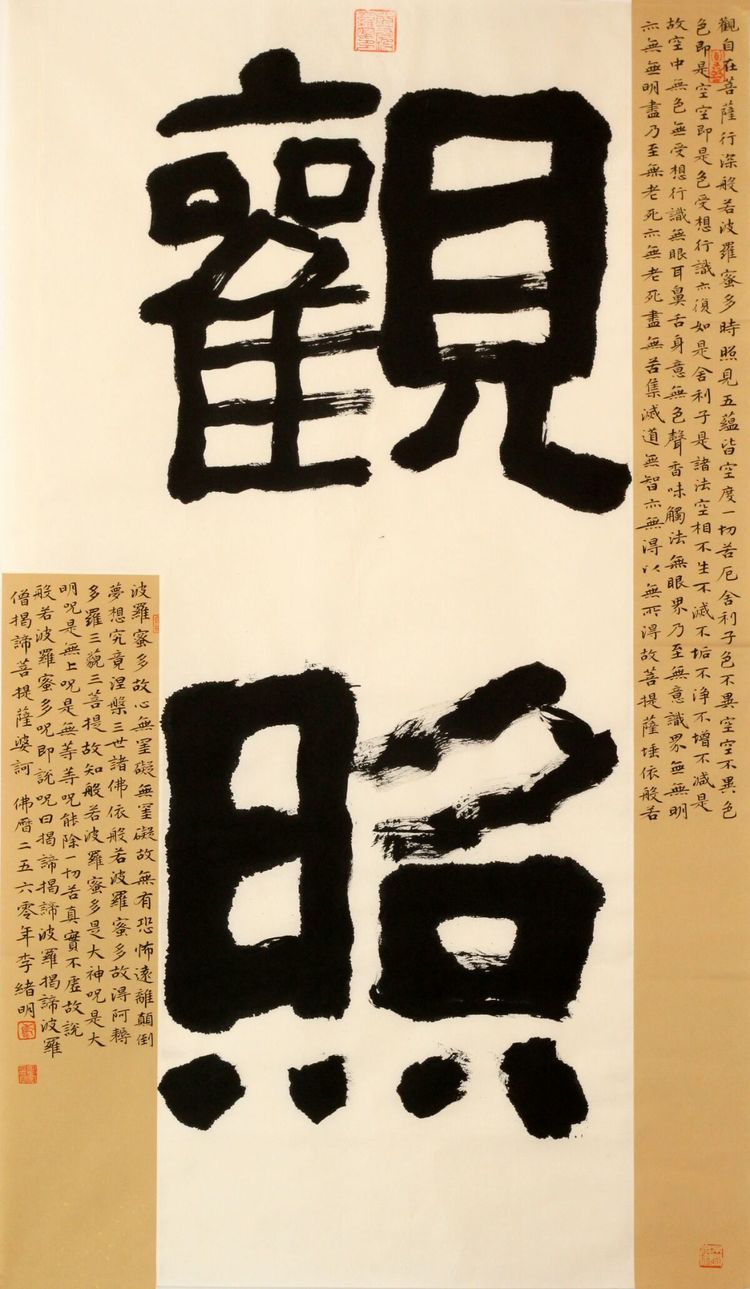 觀照
觀自在菩薩行深般若波羅蜜多時照見五蘊皆空度一切苦厄舍利子色不異空空不異色
色即是空空即是色受想行識亦復如是舍利子是諸法空相不生不滅不垢不淨不增不減是
故空中無色無受想行識無眼耳鼻舌身意無色聲香味觸法無眼界乃至無意識界無無明
亦無無明盡乃至無老死亦無老死盡無苦集滅道無智亦無得以無所得故菩提薩埵依般若
波羅蜜多故心無罣礙無罣礙故無有恐怖遠離顛倒
夢想究竟涅槃三世諸佛依般若波羅蜜多故得阿耨
多羅三藐三菩提故知般若波羅蜜多是大神呪是大
明呪是無上呪是無等等呪能除一切苦真實不虛故說
般若波羅蜜多呪即說呪曰揭諦揭諦波羅揭諦波羅
僧揭諦菩提薩婆訶 佛曆二五六零年李緒明